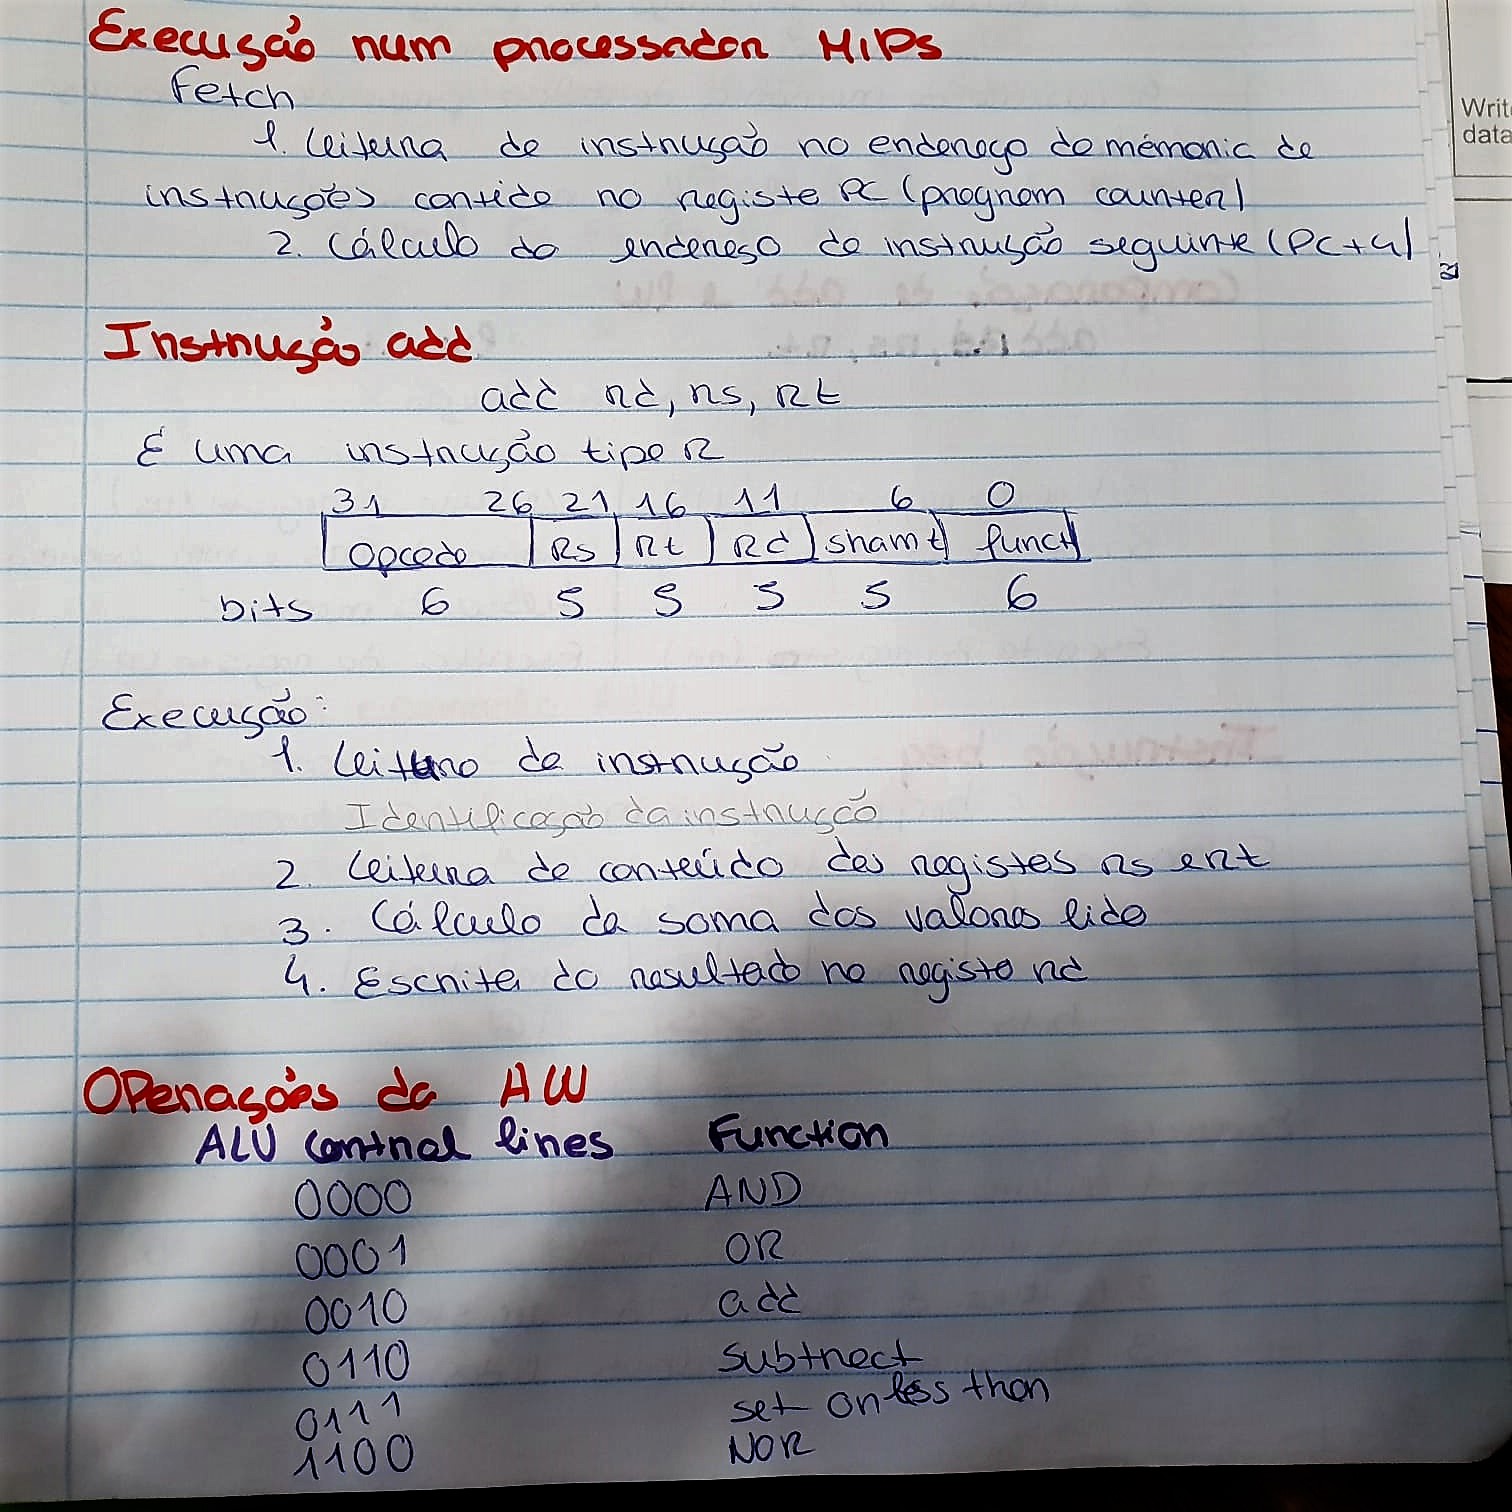 Execução num processador MIPS
Fetch
1. Leitura de instrução no endereço de mémoria de
instruções contido no registe PC (program counter)
2. Cálculo do endereço de instrução seguinte (PC+4)
Instrução add
add rd, rs, Rt
É uma instrução tipo R
31 26 21 16 11 6 0
Opcode Rs Rt Rd shamt funct
bits 6 5 5 5 5 6
Execução:
1. Leitura da instrução
Identificação da instrução
2. Leitura de conteúdo dos registes rs e rt
3. Cálculo da soma dos valores lido
4. Escrita do resultado no registo rd
Operações da ALU
ALU control lines Function
0000 AND
0001 OR
0010 add
0110 subtract
0111 set on less than
1100 NOR
Write
data